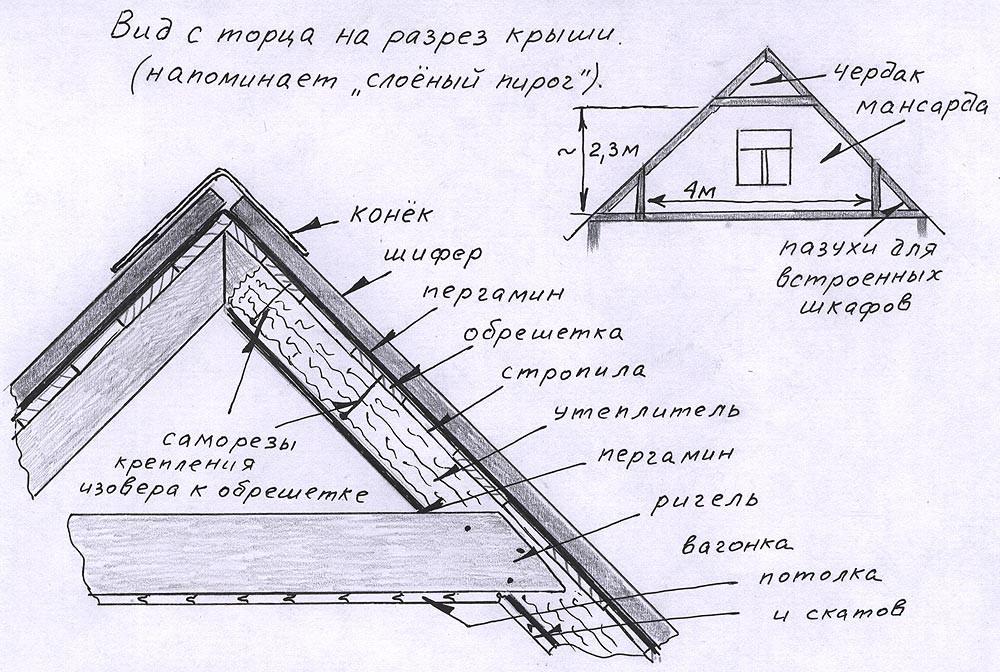 Вид с торца на разрез крыши.
(напоминает „слоёный пирог").
чердак
мансарда
~ 2,3м
4м
пазухи для
встроенных
шкафов
конёк
шифер
пергамин
обрешетка
стропила
утеплитель
пергамин
ригель
вагонка
потолка
и скатов
саморезы
крепления
изовера к обрешетке